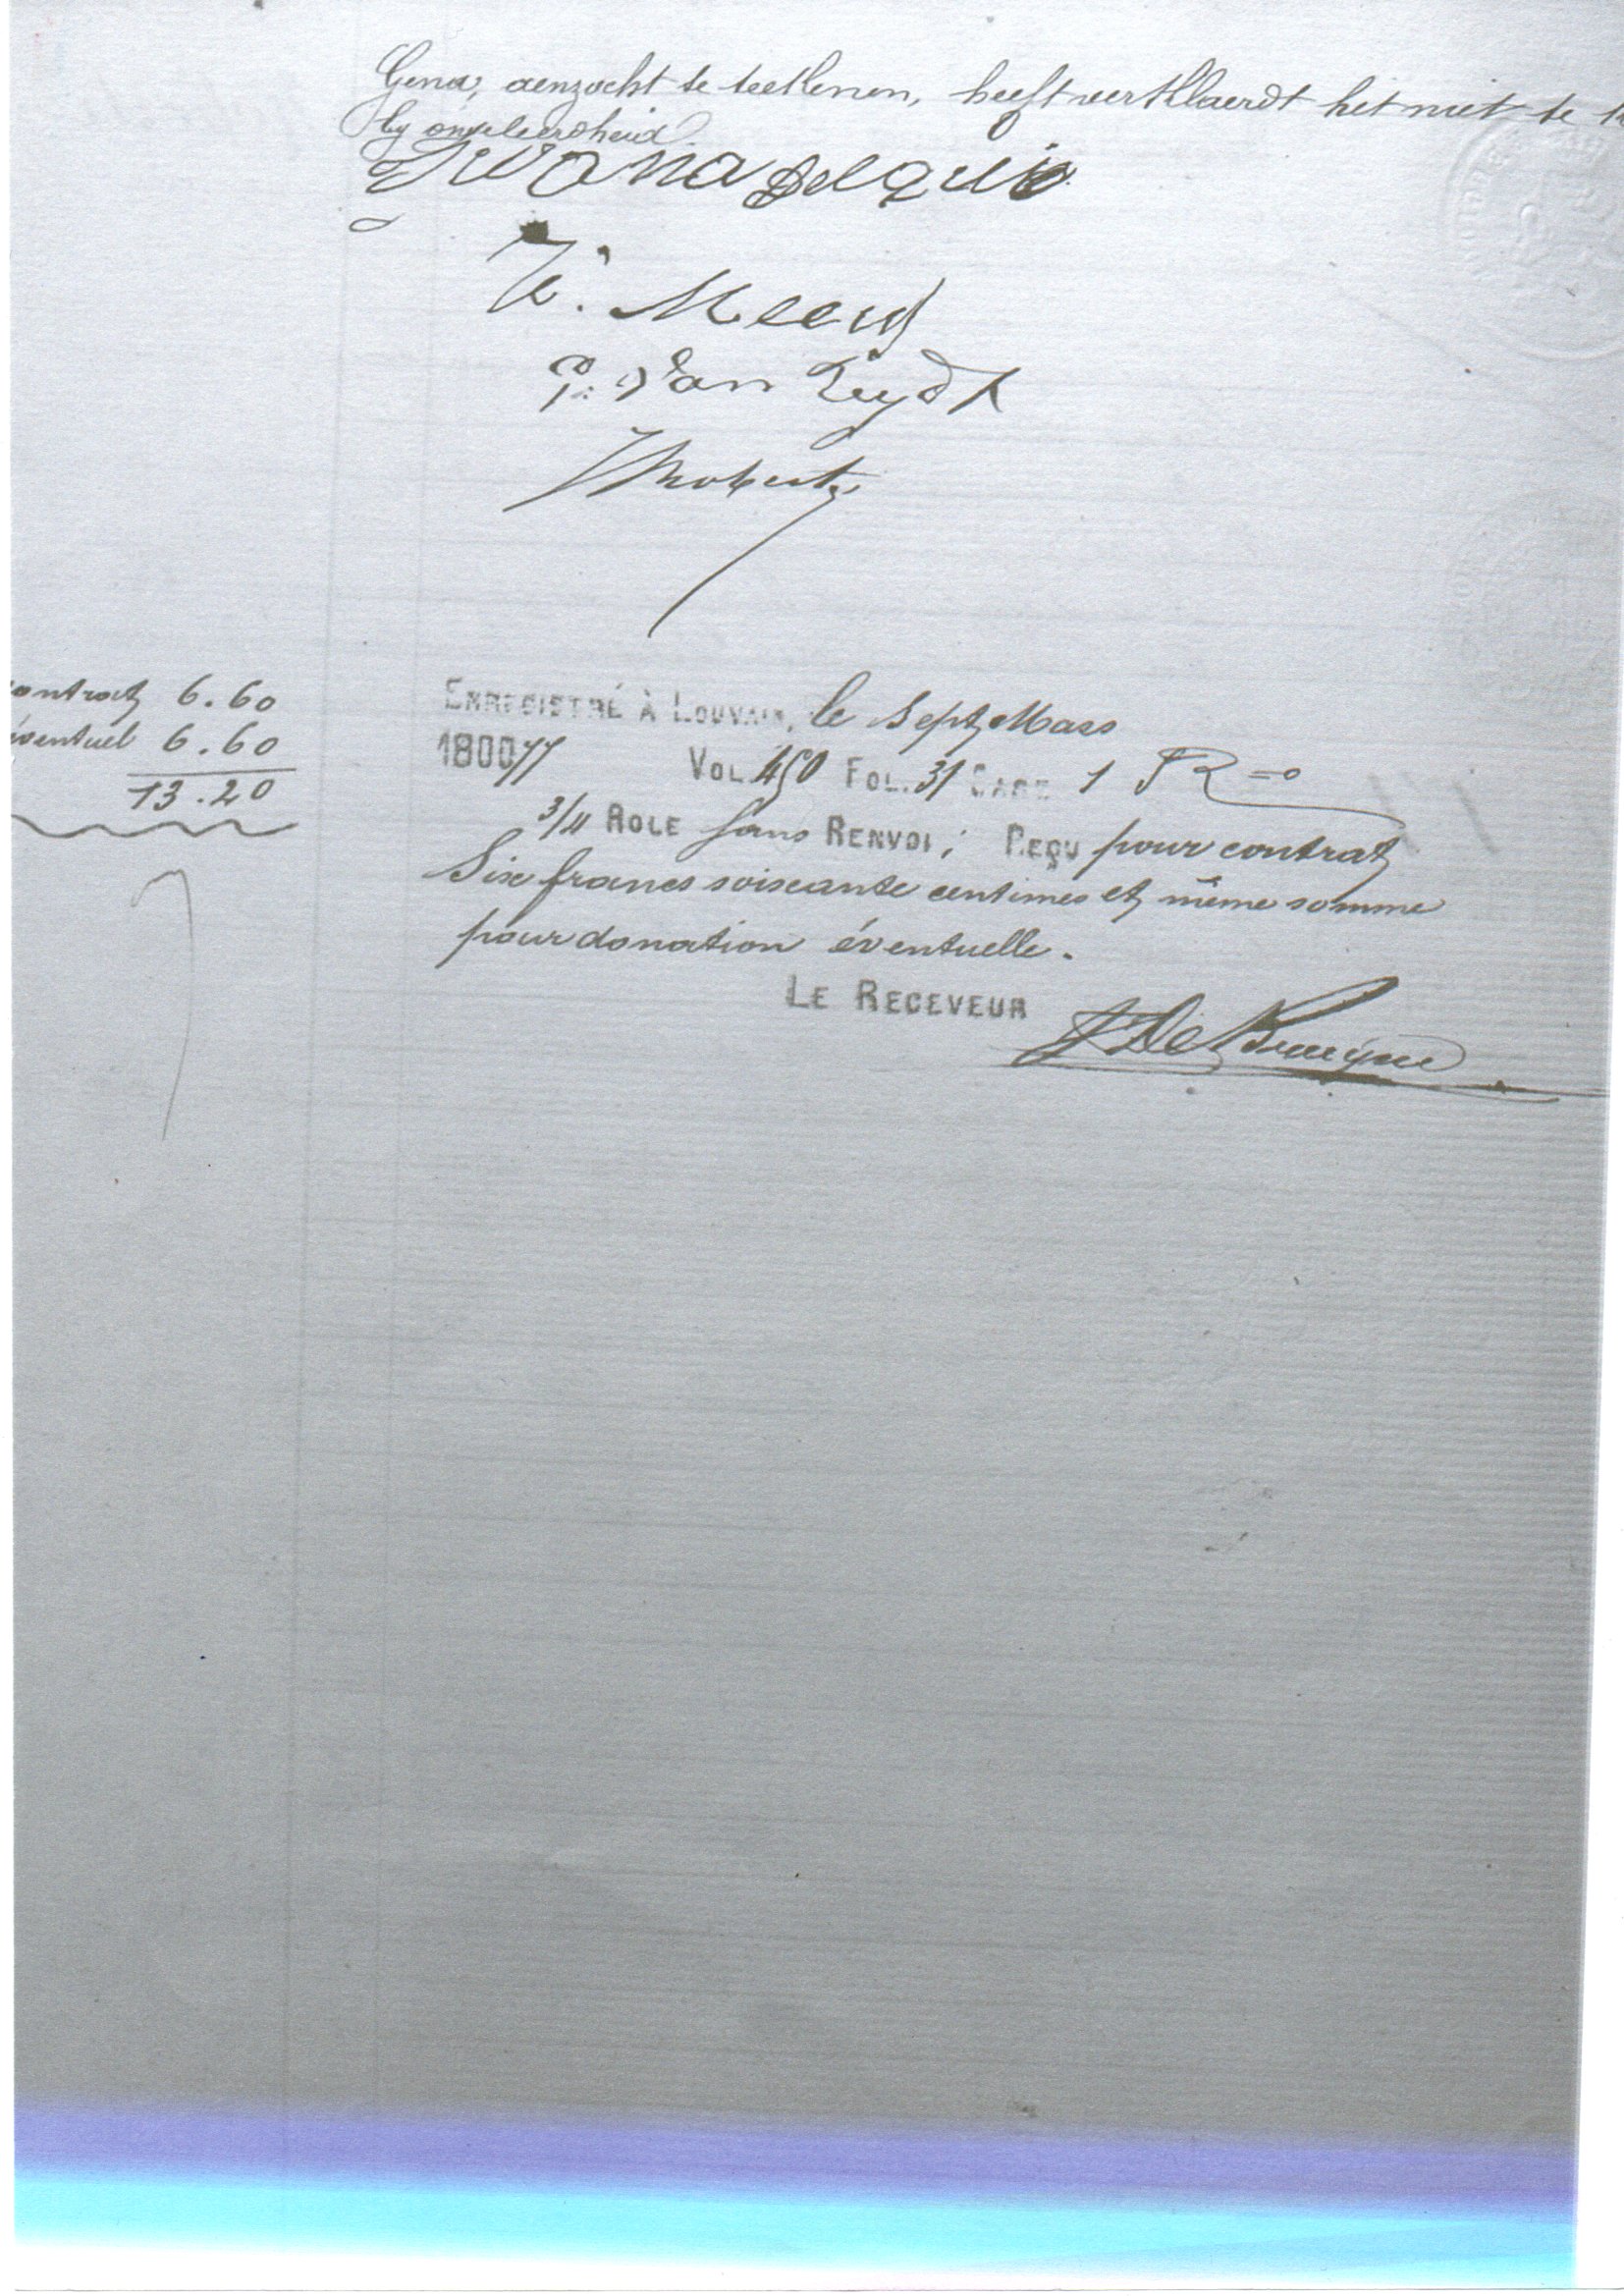 Gena, aenzocht te teekenen, heeft verklaerdt het niet te
by ongeleerdheid.
J. Meeus
P. Van Ruydt
contract 6.60
éventuel 6.60
13.20
ENREGISTRÉ À LOUVAIN, le Sept Mars
180077 VOL. 450 FOL. 31 CASE 1
3/4 ROLE sans RENVOI; REÇU pour contrat
Six francs soixante centimes et même somme
pour donation éventuelle.
LE RECEVEUR
De Bruyne